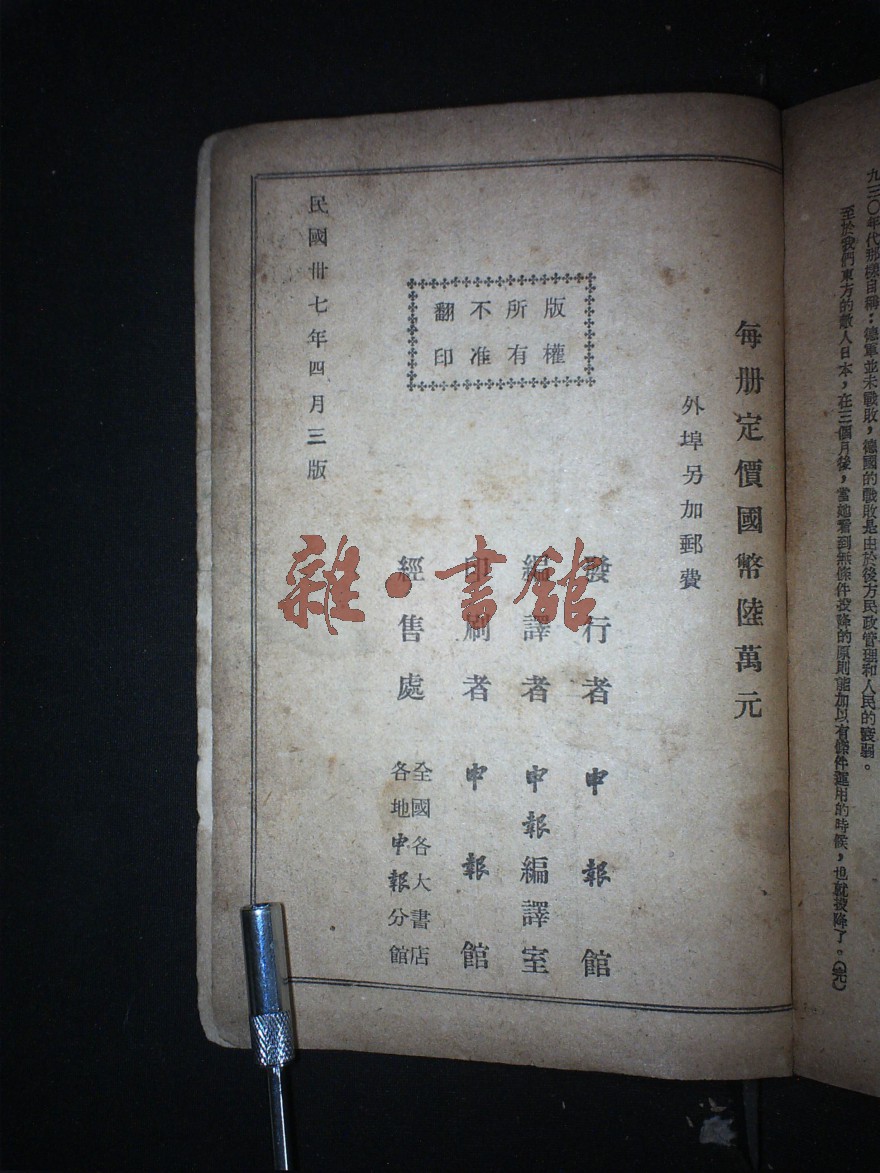 九三〇年代那樣自辯:德軍並未戰敗,德國的戰敗是由於後方民政管理和人民的疲弱。
至於我們東方的敵人日本,在三個月後,當她看到無條件投降的原則能加以有條件運用的時候,也就投降了。(完)
每册定價國幣陸萬元
外埠另加郵費
版權
所有
不准
翻印
發行者 申報館
編譯者 申報編譯室
印刷者 申報館
經售處 全國各大書店
各地申報分館
民國卅七年四月三版
雜·書館